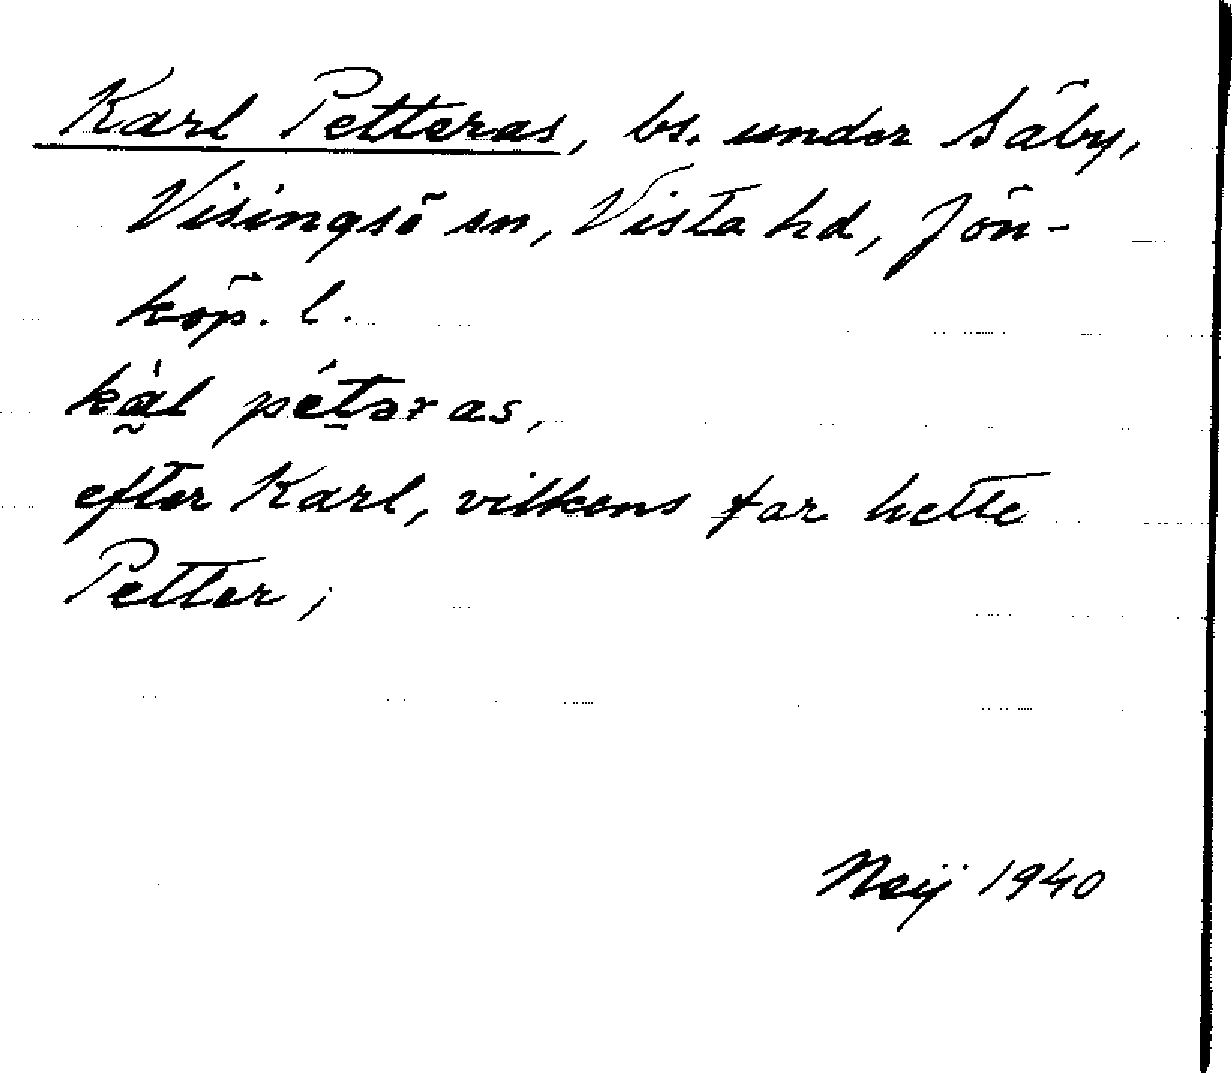 Karl Petteras, bs. under Säby,
Visingsö sn, Vista hd, Jön-
köp. l.
kàl pétəras,
efter Karl, vilkens far hette
Petter;
Neij 1940